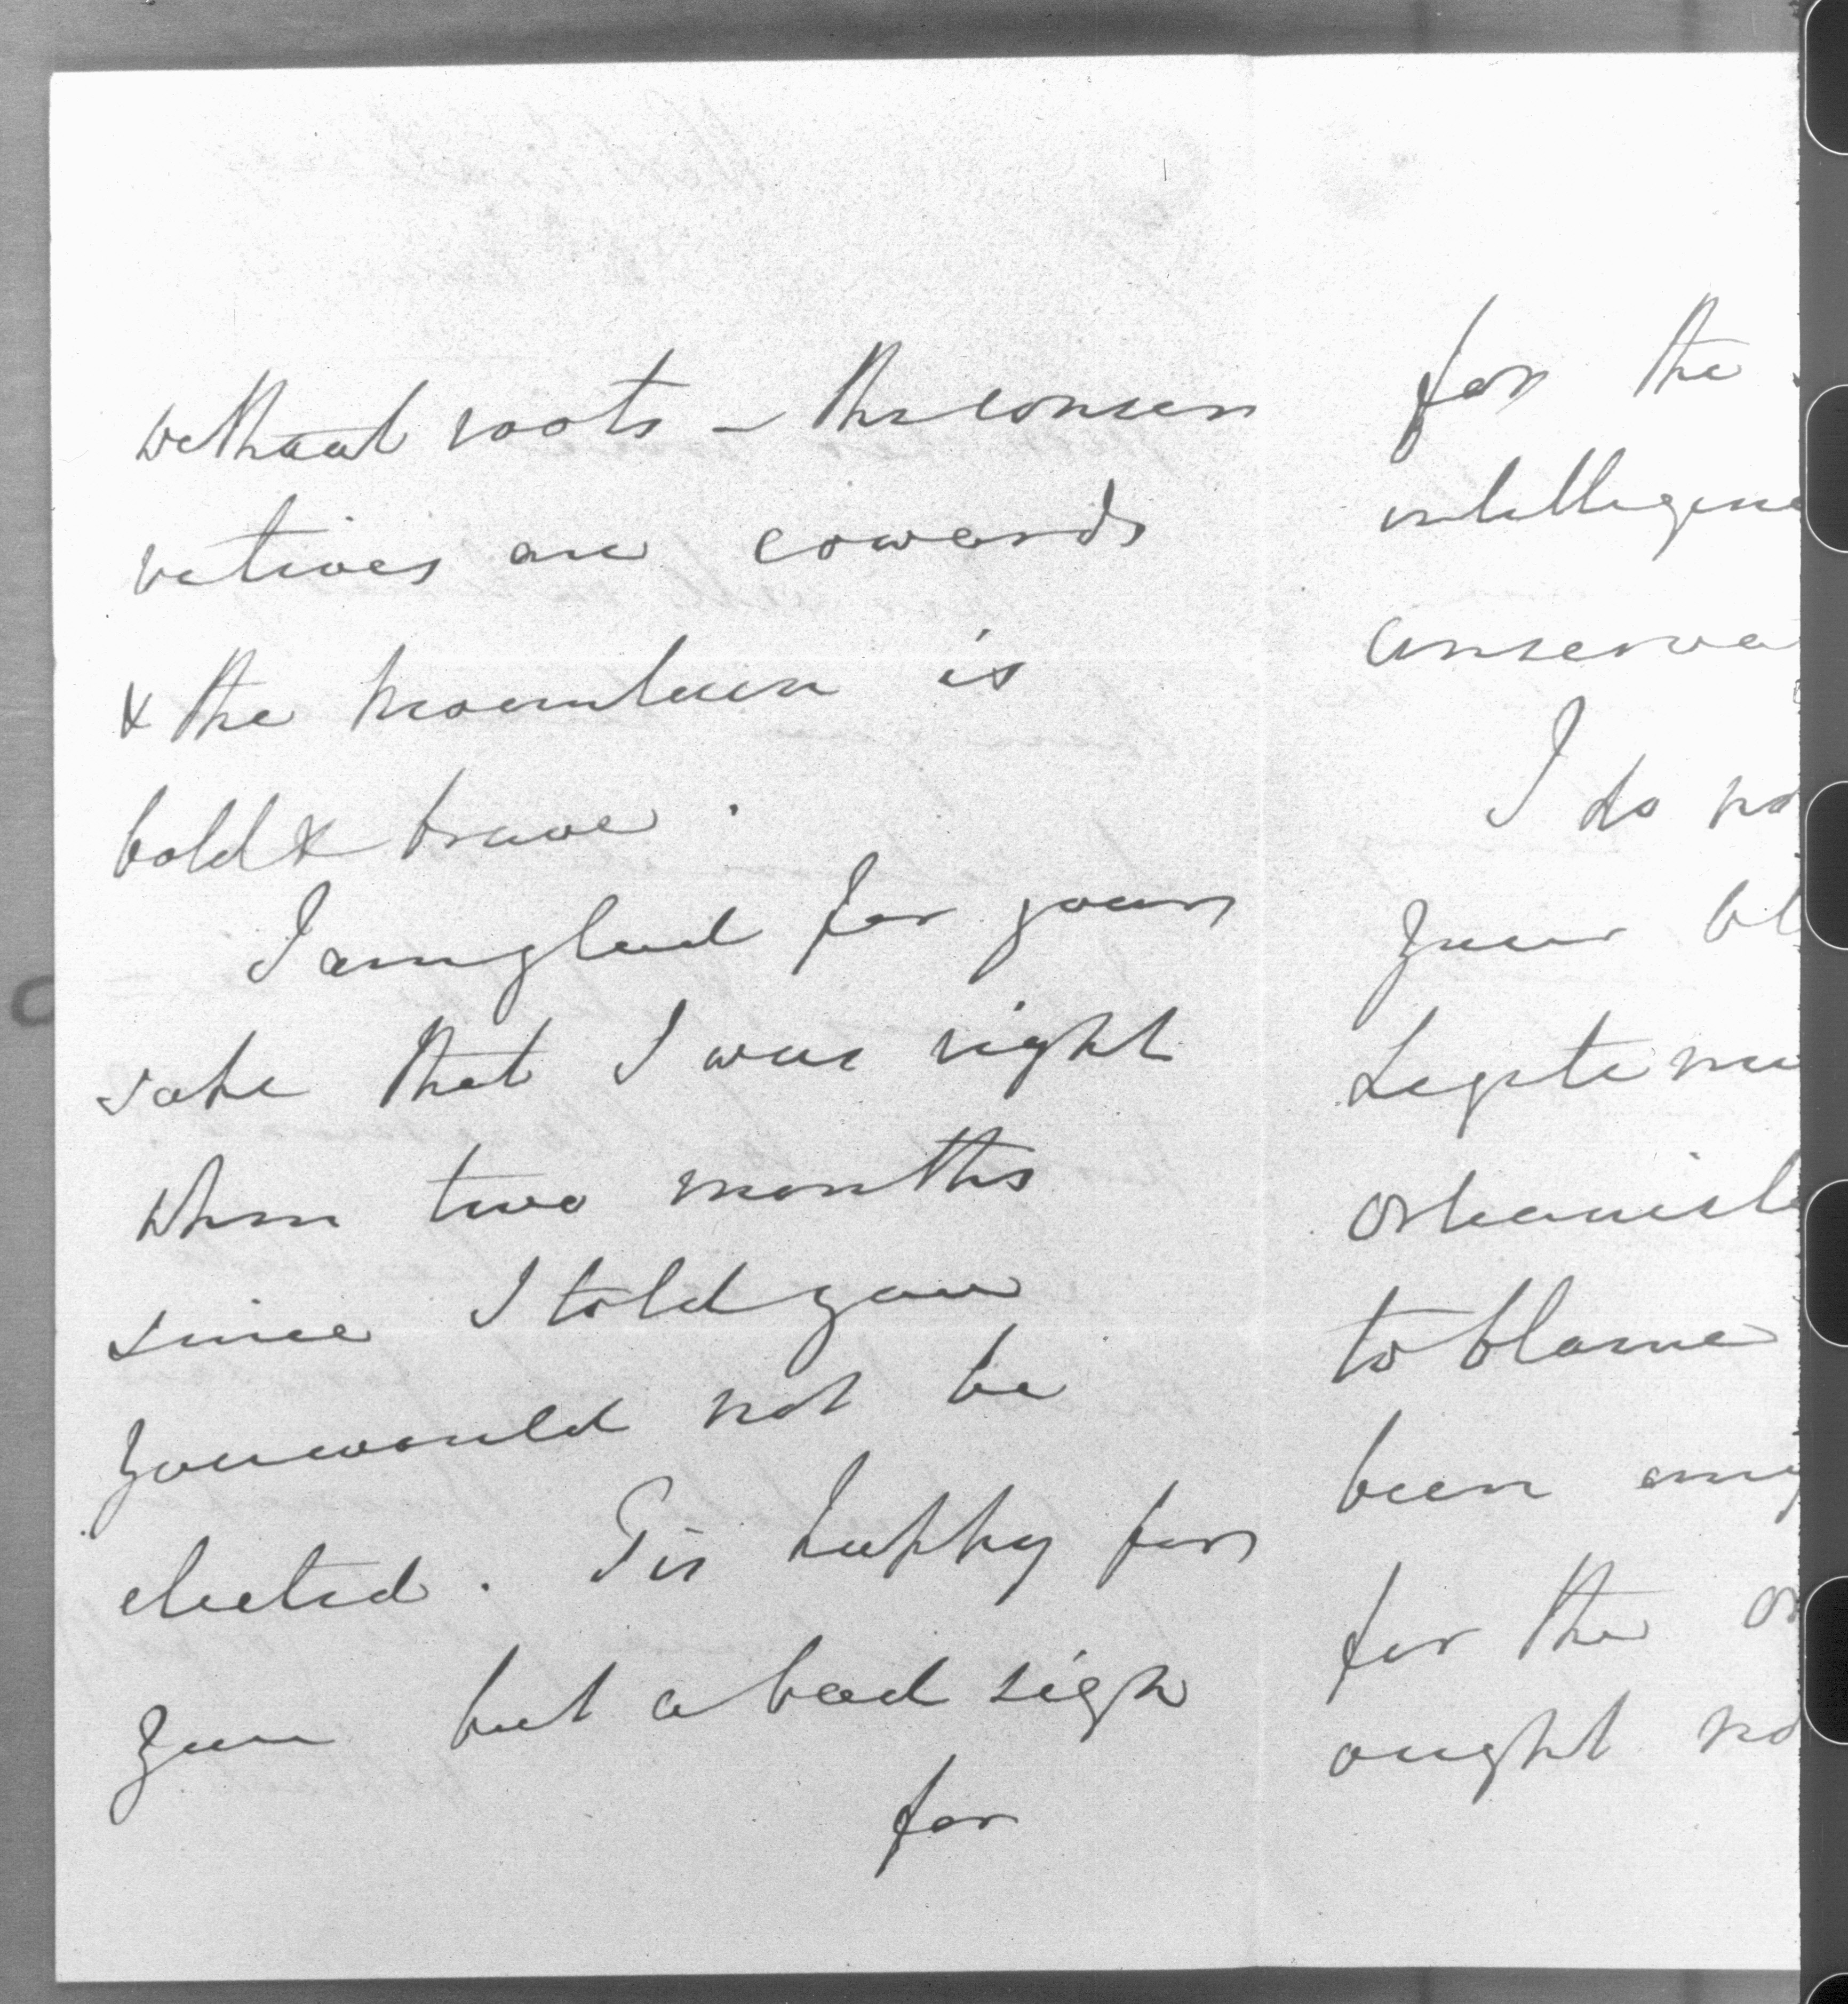 without roots – the conser
vatives are cowards
& the Mountain is
bold & brave.
I am glad for your
sake that I was right
when two months
since I told you
you would not be
elected. Tis happy for
you but a bad sign
for
for the
intelligence
conserva
I do no
your bl
Legitimi
Orleanist
to blame
been any
for the Or
ought no